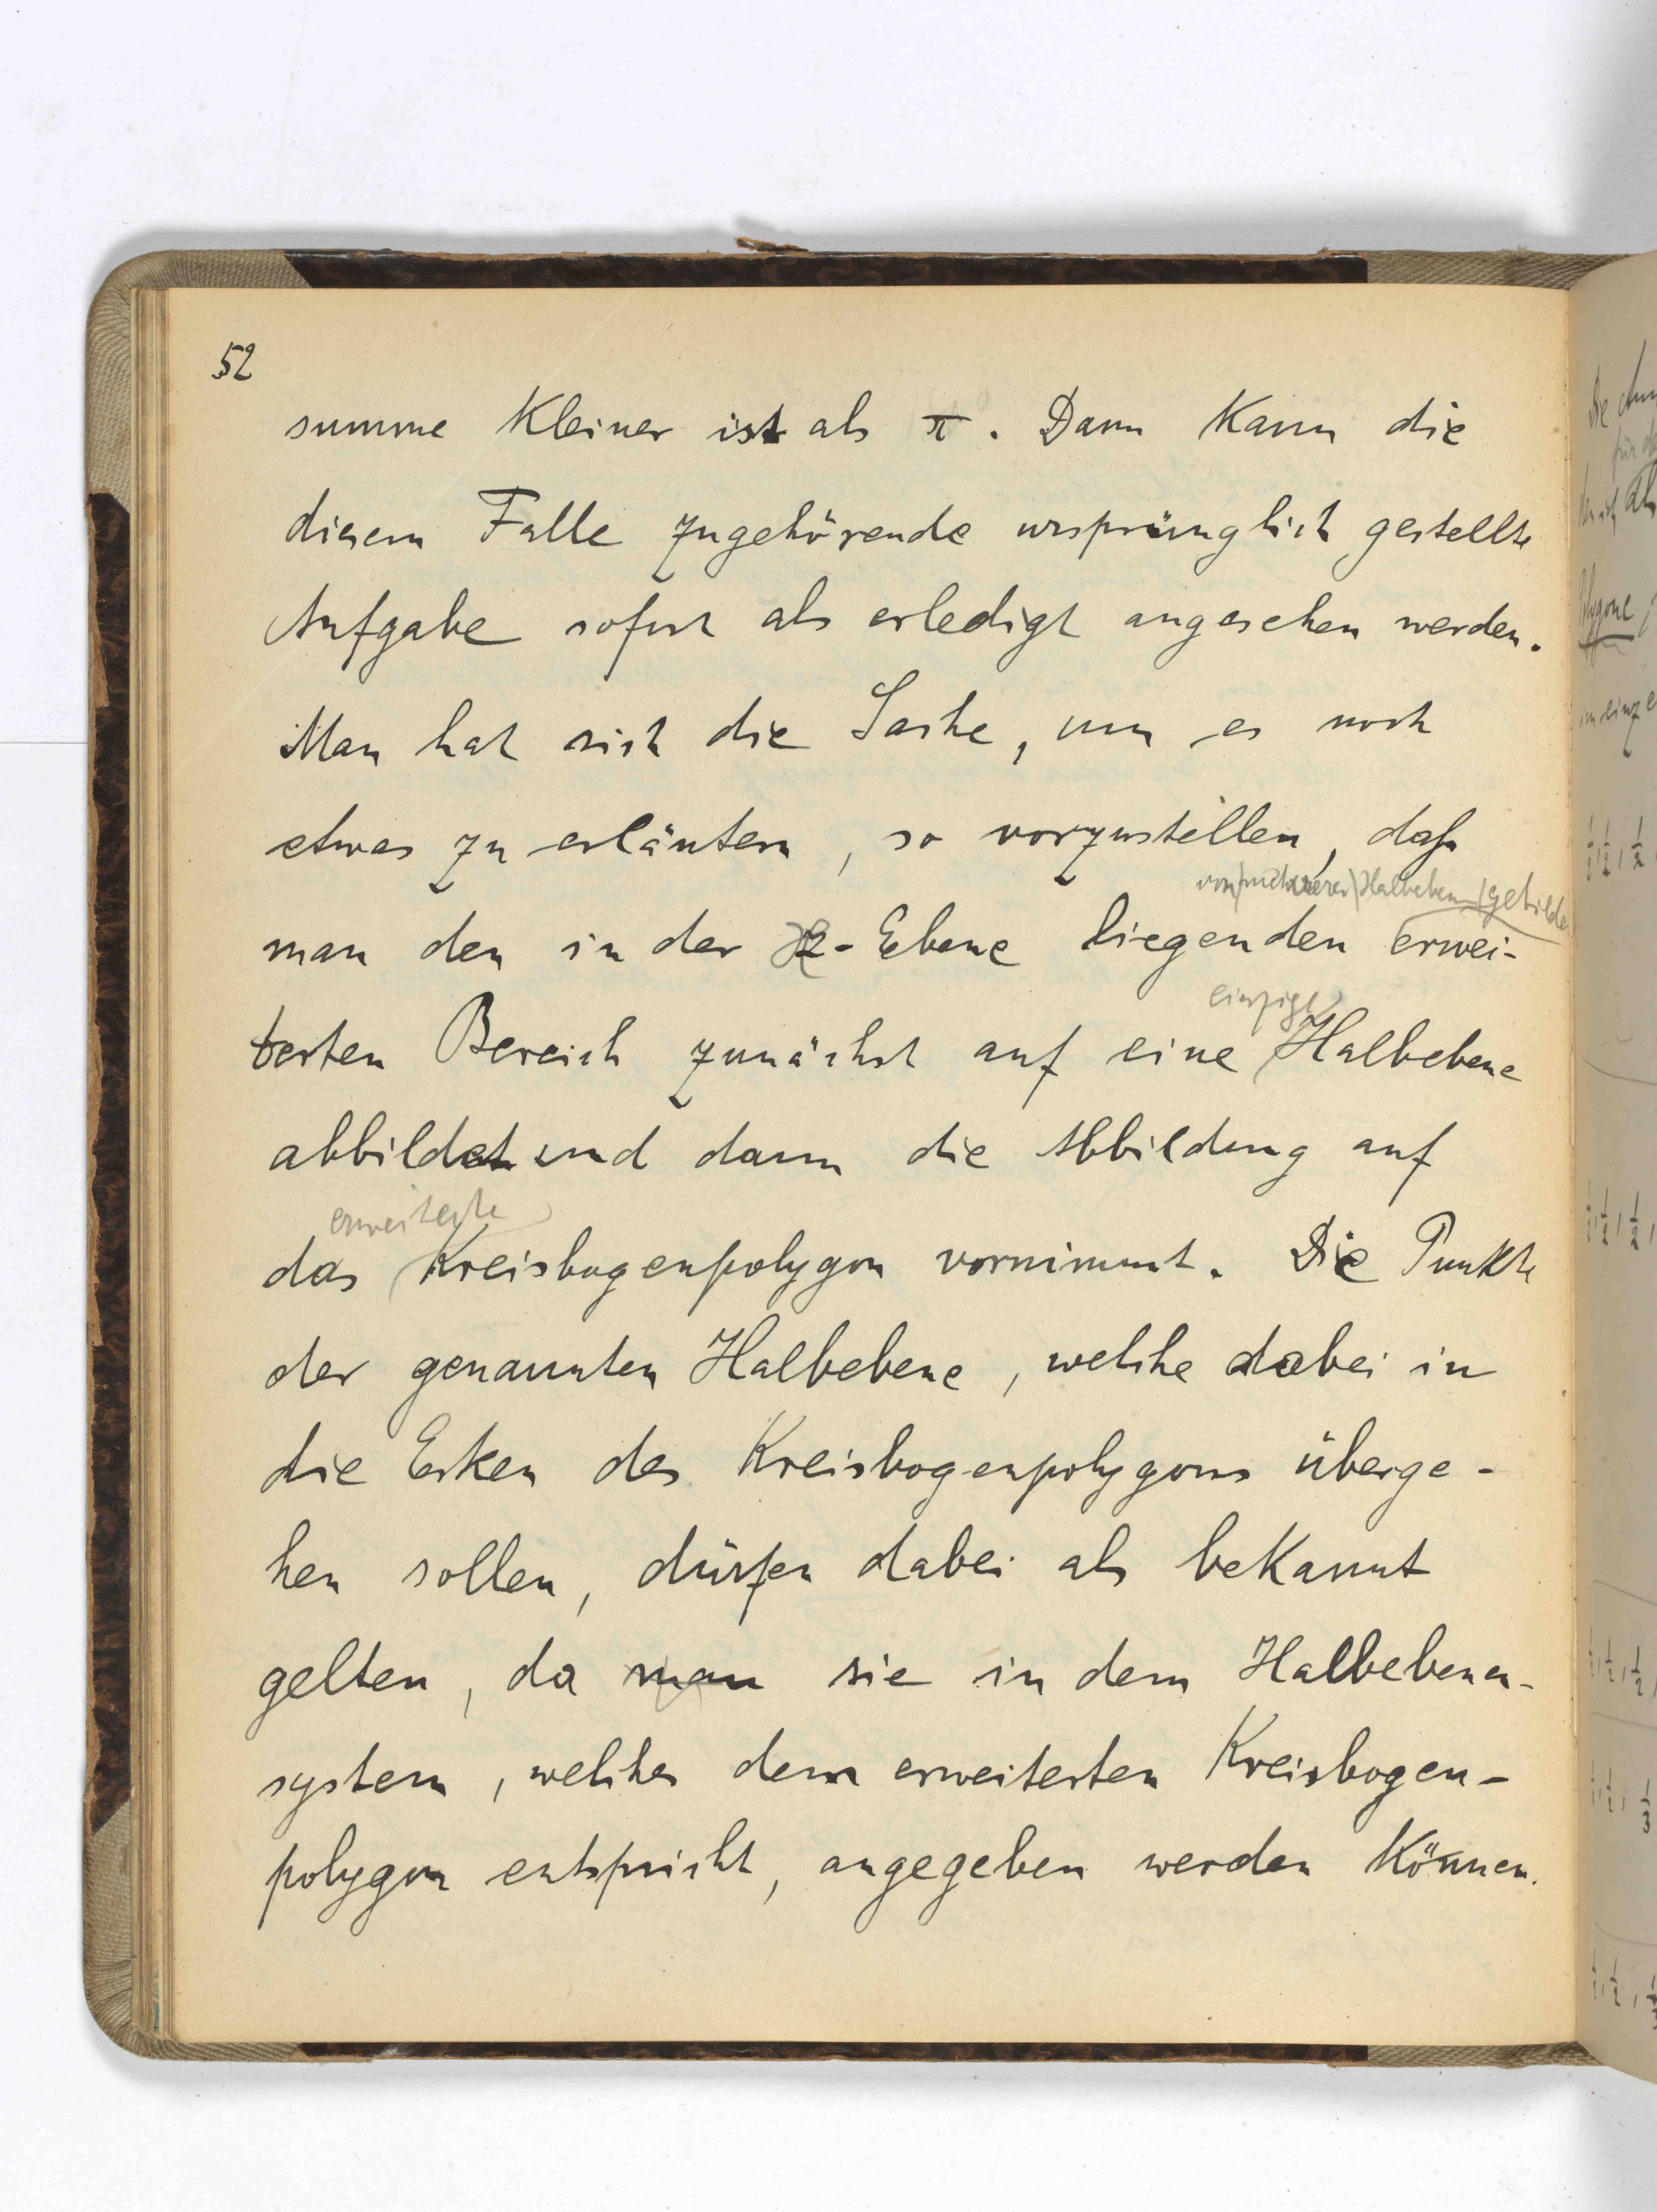 52
summe kleiner ist als π. Dann kann die
diesem Falle zugehörende ursprünglich gestellte
Aufgabe sofort als erledigt angesehen werden.
Man hat sich die Sache, um es noch
etwas zu erläutern, so vorzustellen, daß
von mehreren Halbebenen gebilde
man den in der -Ebene liegenden erwei-
einzige
terten Bereich zunächst auf eine Halbebene
abbildet und dann die Abbildung auf
erweiterte
das Kreisbogenpolygon vornimmt. Die Punkte
der genannten Halbebene, welche dabei in
die Ecken des Kreisbogenpolygons überge-
hen sollen, dürfen dabei als bekannt
gelten, da man sie in dem Halbebenen-
system, welches dem erweiterten Kreisbogen-
polygon entspricht, angegeben werden können.
Die
für
Polygone